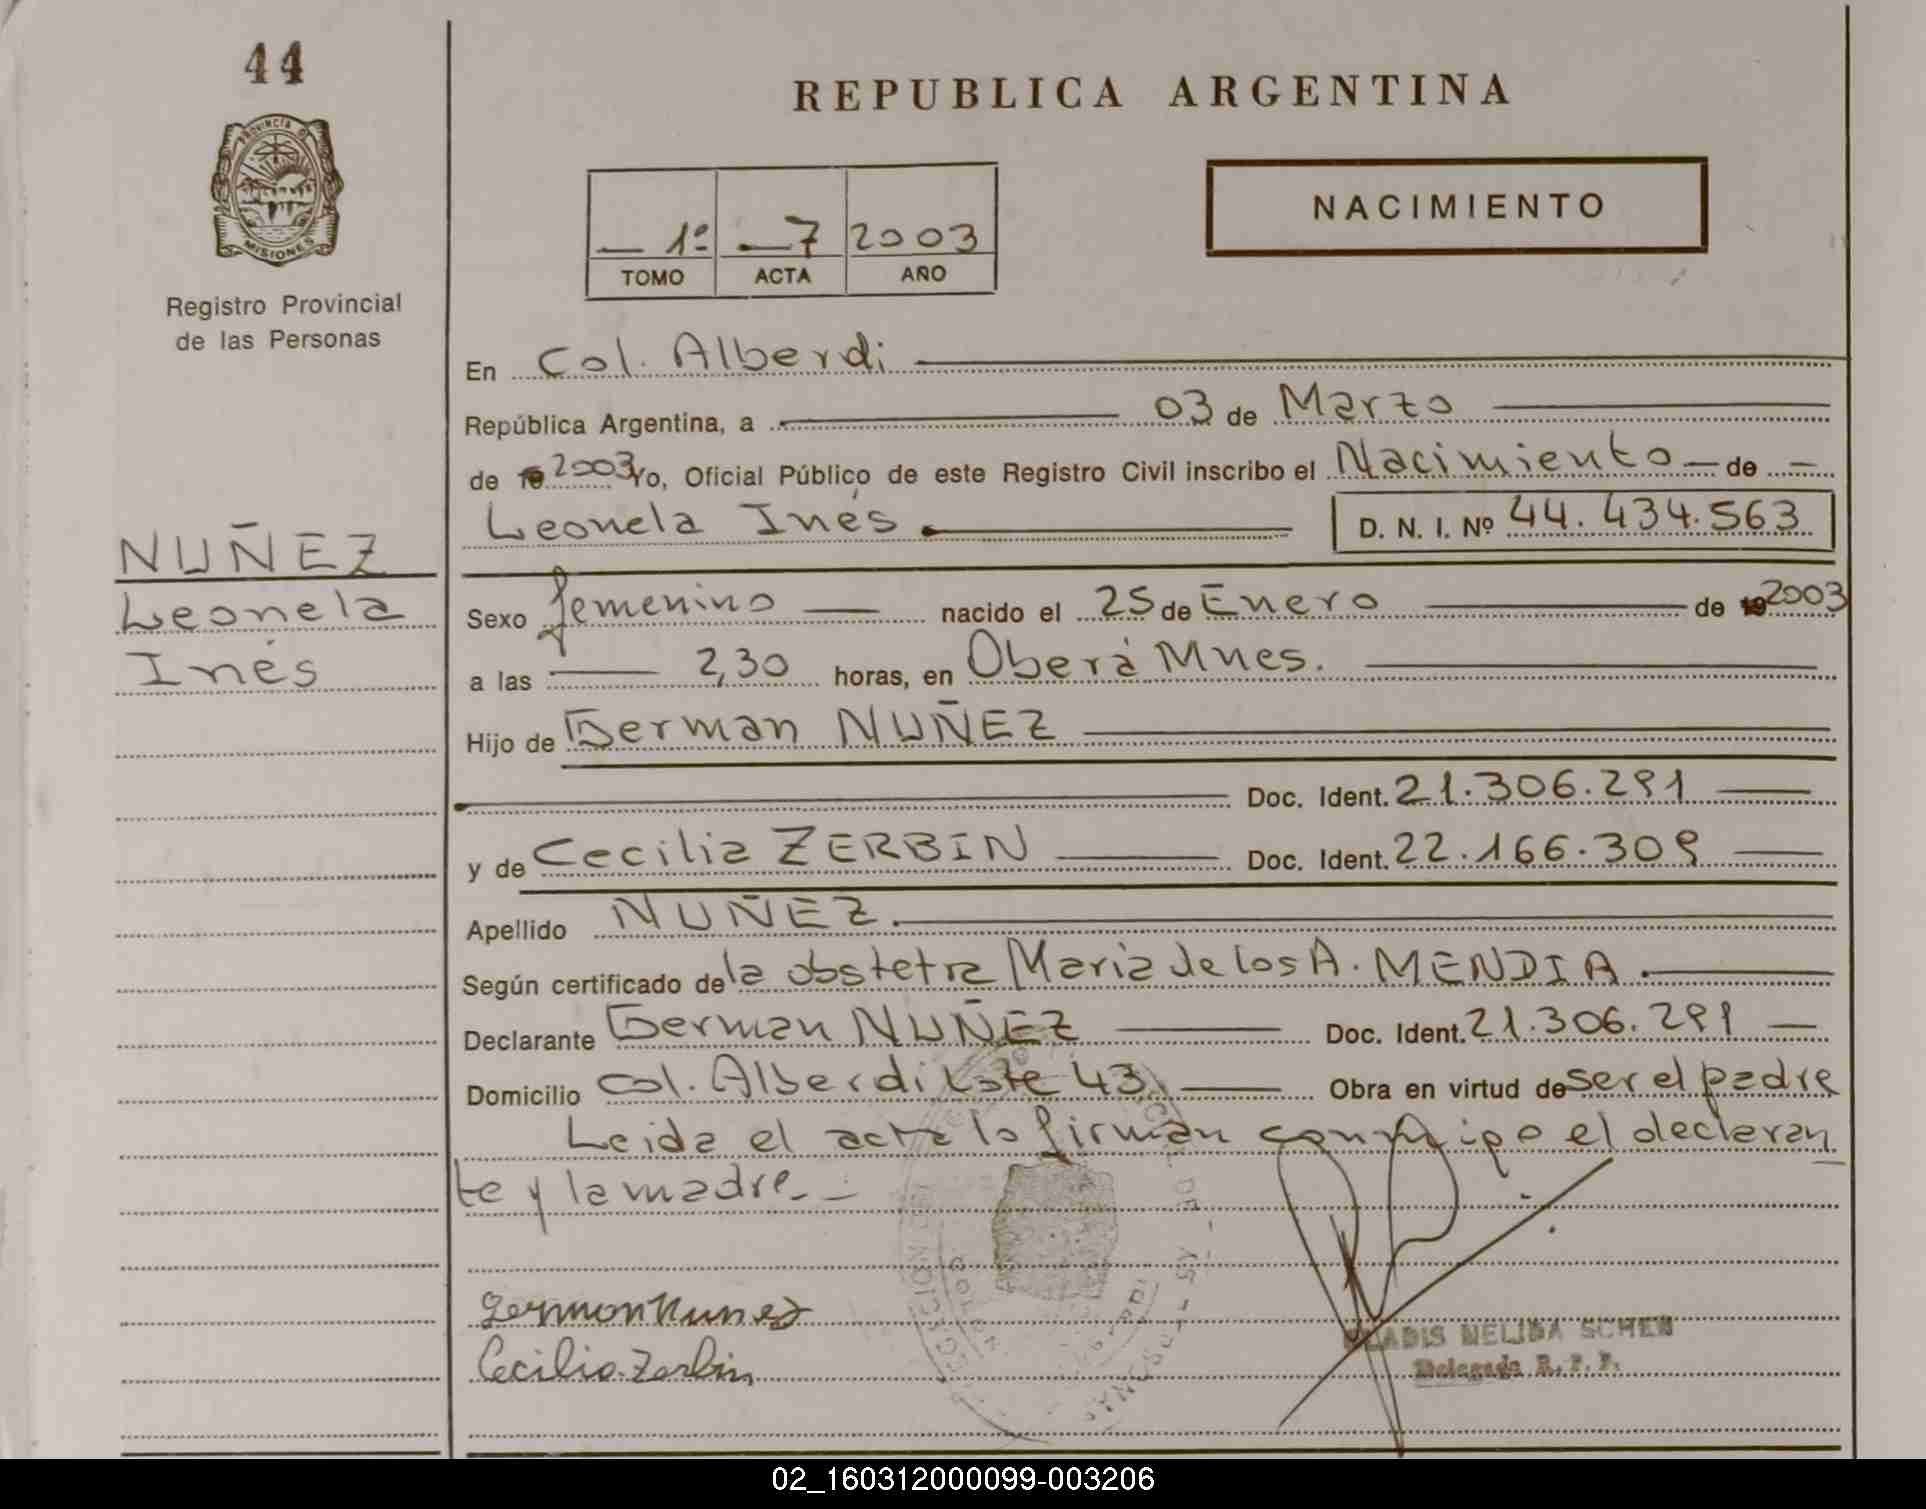 44
PROVINCIA DE
MISIONES
Registro Provincial
de las Personas
NUÑEZ
Leonela
Inés
REPUBLICA ARGENTINA
1º 7 2003
TOMO ACTA AÑO
NACIMIENTO
En Col. Alberdi
República Argentina, a 03 de Marzo
de 2003 Yo, Oficial Público de este Registro Civil inscribo el Nacimiento de
Leonela Inés D. N. I. Nº 44.434.563
Sexo femenino nacido el 25 de Enero de 19 2003
a las 2,30 horas, en Oberá Mnes.
Hijo de German NUÑEZ
Doc. Ident. 21.306.291
y de Cecilia ZERBIN Doc. Ident. 22.166.309
Apellido NUÑEZ
Según certificado de la obstetra Maria de los A. MENDIA
Declarante German NUÑEZ Doc. Ident. 21.306.291
Domicilio Col. Alberdi Lote 43 Obra en virtud de ser el padre
Leida el acta lo firman conmigo el declaran
te y la madre
German Nunez
Cecilia Zerbin
NELIDA SCHEN
Delegada R. P. P.
02_160312000099-003206